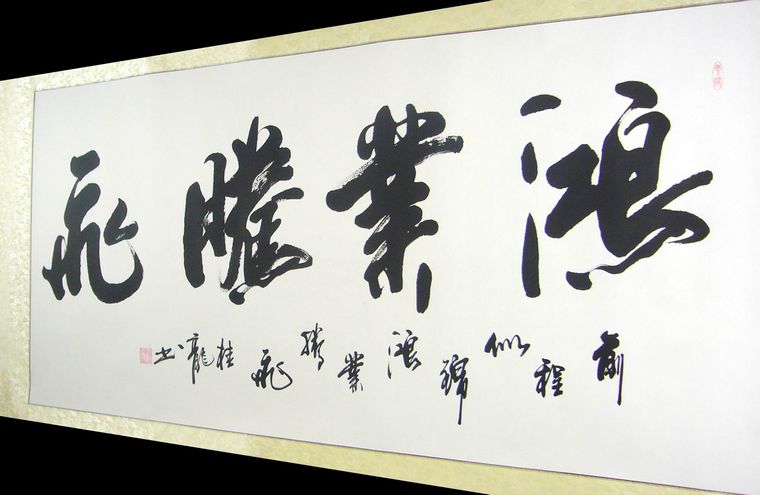 鴻業騰飛
前程似錦鴻業騰飛桂龍书